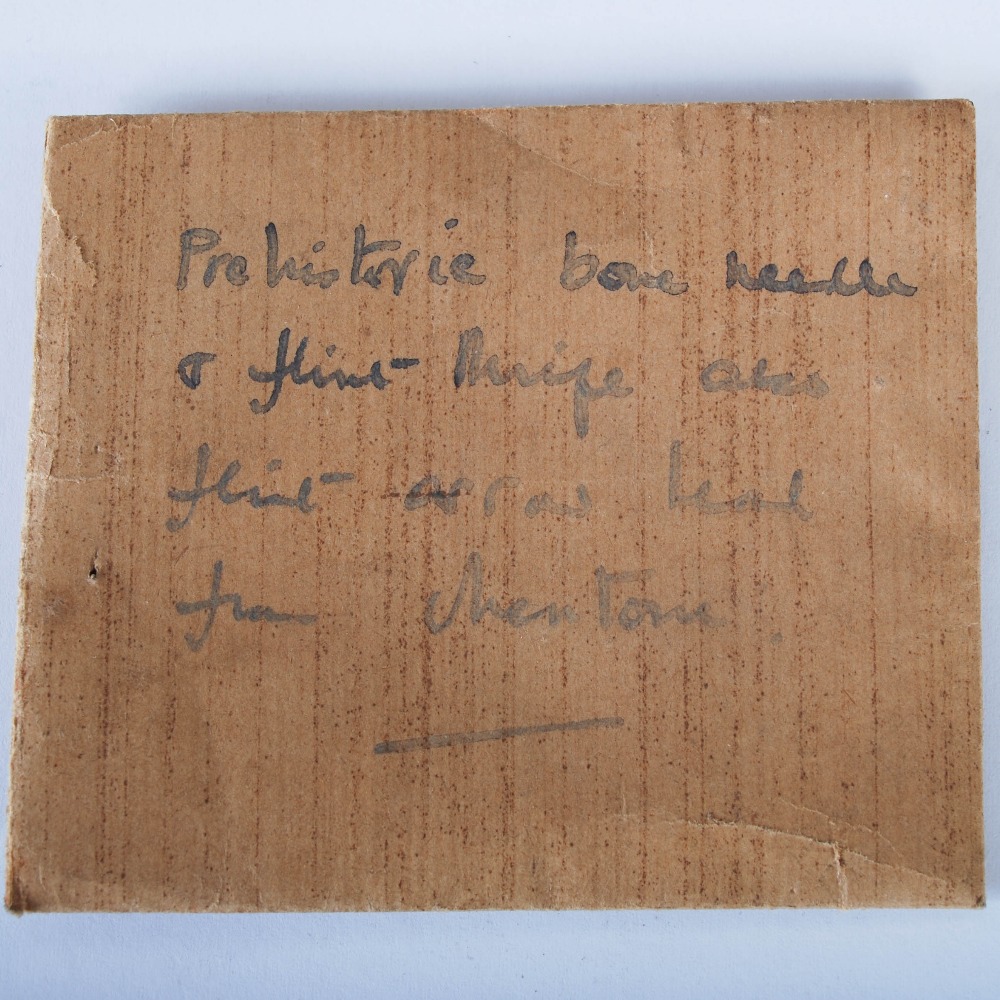 Prehistoric bone needle
& flint knife also
flint arrow head
from Mentone.